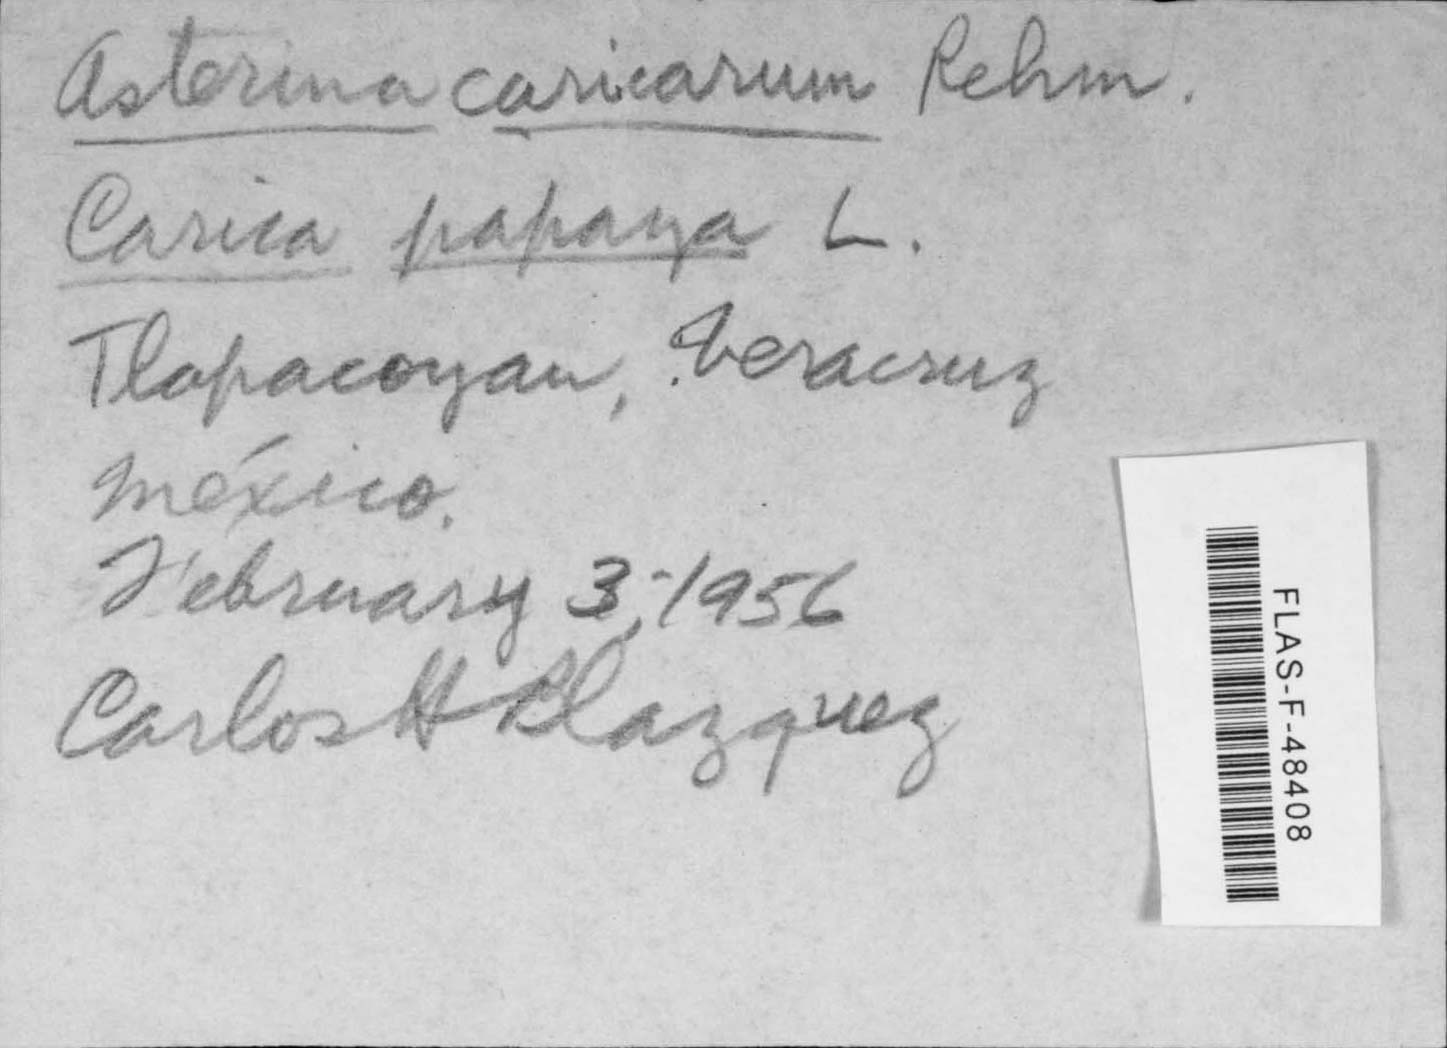 Asterina caricarum Rehm.
Carica papaya L.
Tlapacoyan, Veracruz
México.
February 3, 1956
Carlos H Blazquez
FLAS-F-48408